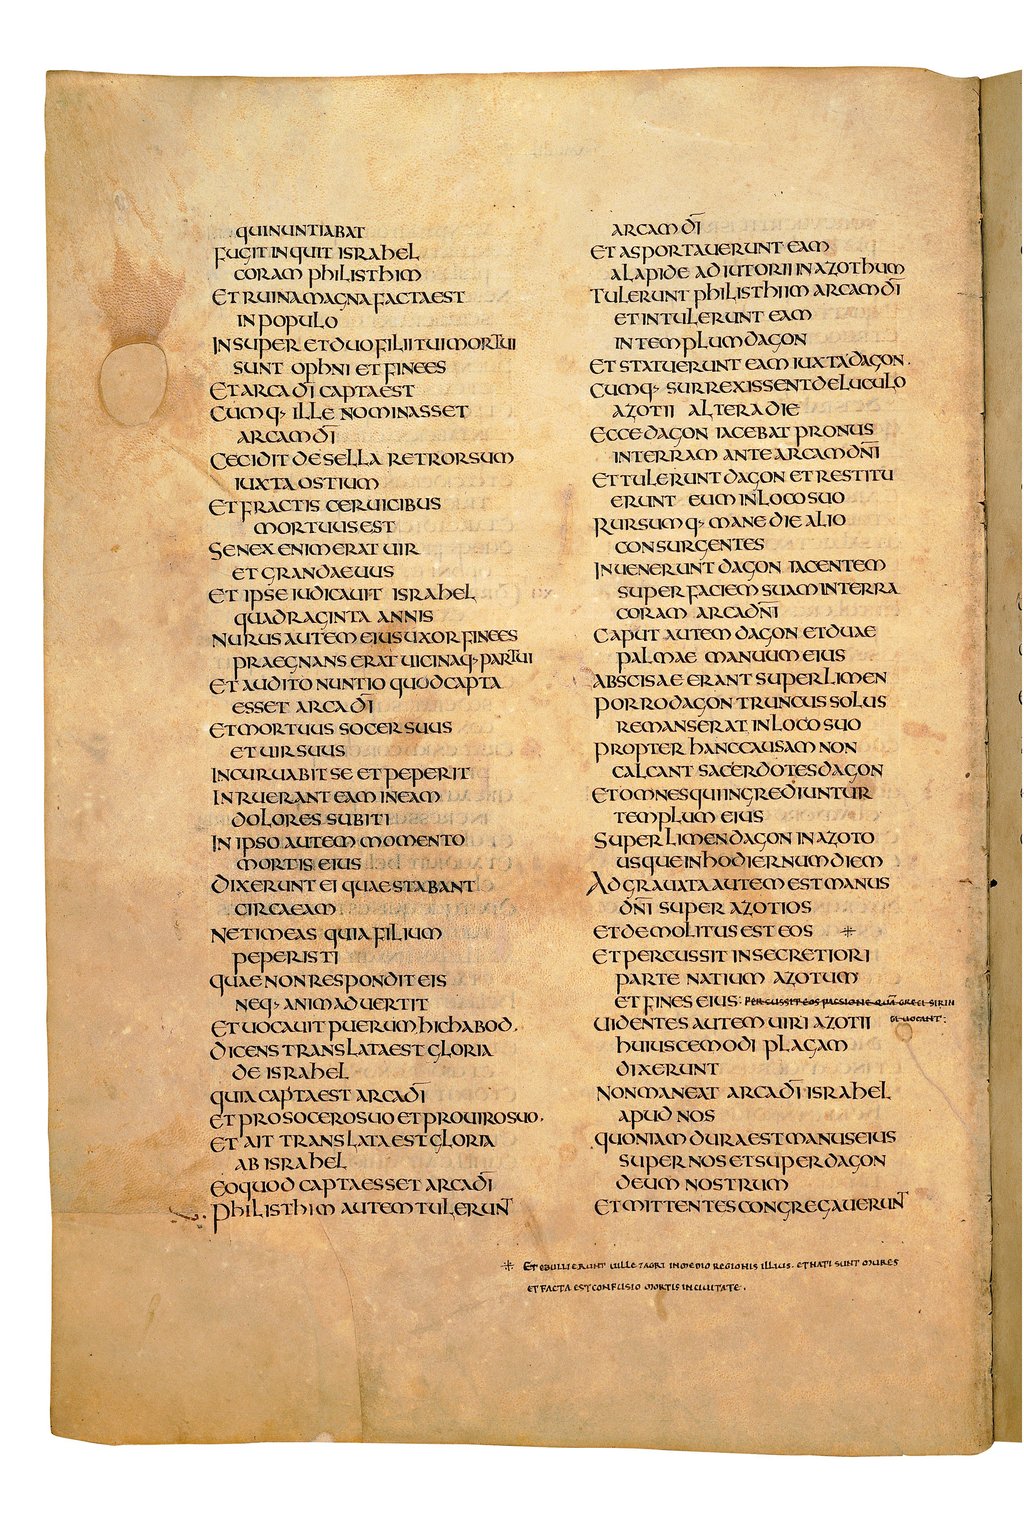 QUINUNTIABAT
FUGIT INQUIT ISRAHEL
CORAM PHILISTHIM
ET RUINA MAGNA FACTA EST
IN POPULO
INSUPER ET DUO FILII TUI MORTUI
SUNT OPHNI ET FINEES
ET ARCA DI CAPTA EST
CUMQ· ILLE NOMINASSET
ARCAM DI
CECIDIT DE SELLA RETRORSUM
IUXTA OSTIUM
ET FRACTIS CERUICIBUS
MORTUUS EST
SENEX ENIM ERAT UIR
ET GRANDAEUUS
ET IPSE IUDICAUIT ISRAHEL
QUADRAGINTA ANNIS
NURUS AUTEM EIUS UXOR FINEES
PRAEGNANS ERAT UICINAQ· PARTUI
ET AUDITO NUNTIO QUOD CAPTA
ESSET ARCA DI
ET MORTUUS SOCER SUUS
ET UIR SUUS
INCURUABIT SE ET PEPERIT
INRUERANT EAM IN EAM
DOLORES SUBITI
IN IPSO AUTEM MOMENTO
MORTIS EIUS
DIXERUNT EI QUAE STABANT
CIRCA EAM
NE TIMEAS QUIA FILIUM
PEPERISTI
QUAE NON RESPONDIT EIS
NEQ· ANIMADUERTIT
ET UOCAUIT PUERUM HICHABOD.
DICENS TRANSLATA EST GLORIA
DE ISRAHEL
QUIA CAPTA EST ARCA DI
ET PRO SOCERO SUO ET PRO UIRO SUO.
ET AIT TRANSLATA EST GLORIA
AB ISRAHEL
EO QUOD CAPTA ESSET ARCA DI
PHILISTHIM AUTEM TULERUNT
ARCAM DI
ET ASPORTAUERUNT EAM
A LAPIDE ADIUTORII IN AZOTHUM
TULERUNT PHILISTHIIM ARCAM DI
ET INTULERUNT EAM
IN TEMPLUM DAGON
ET STATUERUNT EAM IUXTA DAGON.
CUMQ· SURREXISSENT DELUCULO
AZOTII ALTERA DIE
ECCE DAGON IACEBAT PRONUS
IN TERRAM ANTE ARCAM DNI
ET TULERUNT DAGON ET RESTITU
ERUNT EUM IN LOCO SUO
RURSUMQ· MANE DIE ALIO
CONSURGENTES
INUENERUNT DAGON IACENTEM
SUPER FACIEM SUAM IN TERRA
CORAM ARCA DNI
CAPUT AUTEM DAGON ET DUAE
PALMAE MANUUM EIUS
ABSCISAE ERANT SUPER LIMEN
PORRO DAGON TRUNCUS SOLUS
REMANSERAT IN LOCO SUO
PROPTER HANC CAUSAM NON
CALCANT SACERDOTES DAGON
ET OMNES QUI INGREDIUNTUR
TEMPLUM EIUS
SUPER LIMEN DAGON IN AZOTO
USQUE IN HODIERNUM DIEM
ADGRAUATA AUTEM EST MANUS
DNI SUPER AZOTIOS
ET DEMOLITUS EST EOS ⁜
ET PERCUSSIT IN SECRETIORI
PARTE NATIUM AZOTUM
ET FINES EIUS: PERCUSSIT EOS PASSIONE QUA GRECI SIRIN
GI UOCANT:
UIDENTES AUTEM UIRI AZOTII
HUIUSCEMODI PLAGAM
DIXERUNT
NON MANEAT ARCA DI ISRAHEL
APUD NOS
QUONIAM DURA EST MANUS EIUS
SUPER NOS ET SUPER DAGON
DEUM NOSTRUM
ET MITTENTES CONGREGAUERUNT
⁜ ET EBULLIERUNT UILLE ET AGRI IN MEDIO REGIONIS ILLIUS. ET NATI SUNT MURES
ET FACTA EST CONFUSIO MORTIS IN CIUITATE.